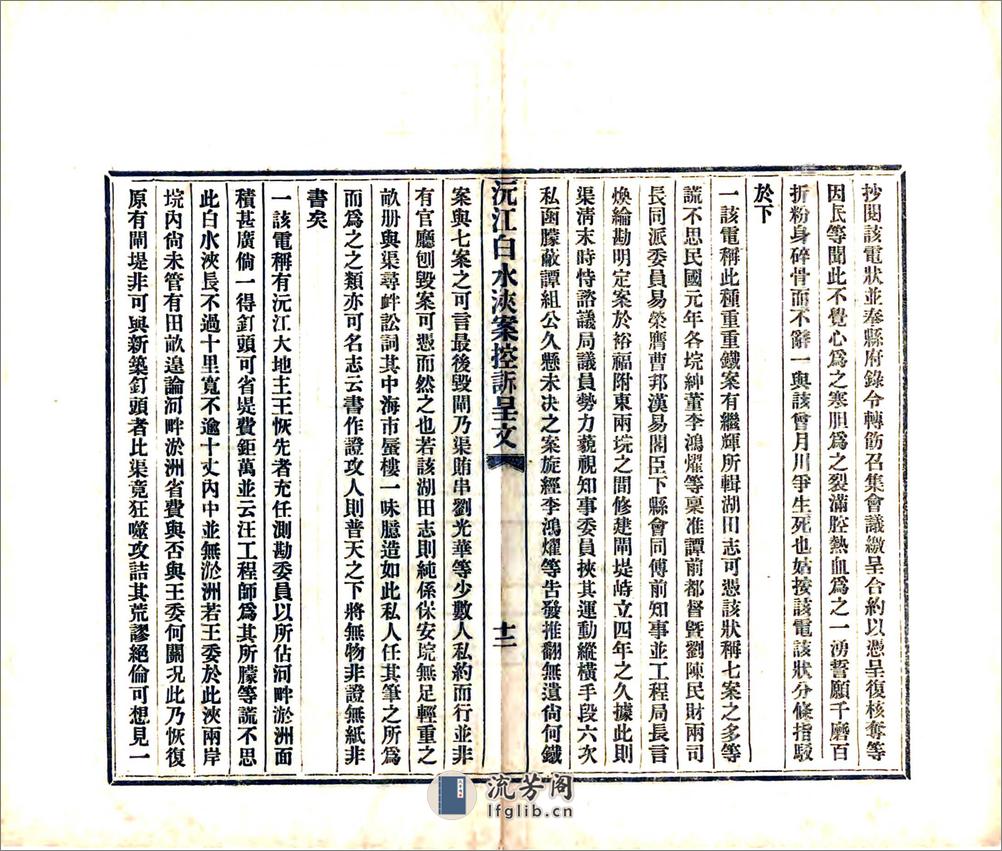 抄閱該電狀並奉縣府錄令轉筋召集會議繳呈合約以憑呈復核奪等
因民等聞此不覺心爲之寒胆爲之裂滿腔熱血爲之一湧誓願千磨百
折粉身碎骨而不辭一與該曾月川爭生死也姑按該電該狀分條指駁
於下
一該電稱此種重重鐵案有繼輝所輯湖田志可憑該狀稱七案之多等
謊不思民國元年各垸紳董李鴻燿等稟准譚前都督曁劉陳民財兩司
長同派委員易榮膺曹邦漢易閣臣下縣會同傅前知事並工程局長言
煥綸勘明定案於裕福附東兩垸之間修建閘堤峙立四年之久據此則
渠淸末時恃諮議局議員勢力藐視知事委員挾其運動縱橫手段六次
私函朦蔽譚組公久懸未决之案旋經李鴻燿等告發推翻無遺尙何鐵
沅江白水浹案控訴呈文
十二
案與七案之可言最後毀閘乃渠賄串劉光華等少數人私約而行並非
有官廳刨毀案可憑而然之也若該湖田志則純係保安垸無足輕重之
畝册與渠尋衅訟詞其中海市蜃樓一味臆造如此私人任其筆之所爲
而爲之之類亦可名志云書作證攻人則普天之下將無物非證無紙非
書矣
一該電稱有沅江大地主王恢先者充任測勘委員以所佔河畔淤洲面
積甚廣倘一得釘頭可省堤費鉅萬並云汪工程師爲其所朦等謊不思
此白水浹長不過十里寬不逾十丈內中並無淤洲若王委於此浹兩岸
垸內尙未管有田畝遑論河畔淤洲省費與否與王委何關况此乃恢復
原有閘堤非可與新築釘頭者比渠竟狂噬攻詰其荒謬絕倫可想見一
流芳阁
lfglib.cn